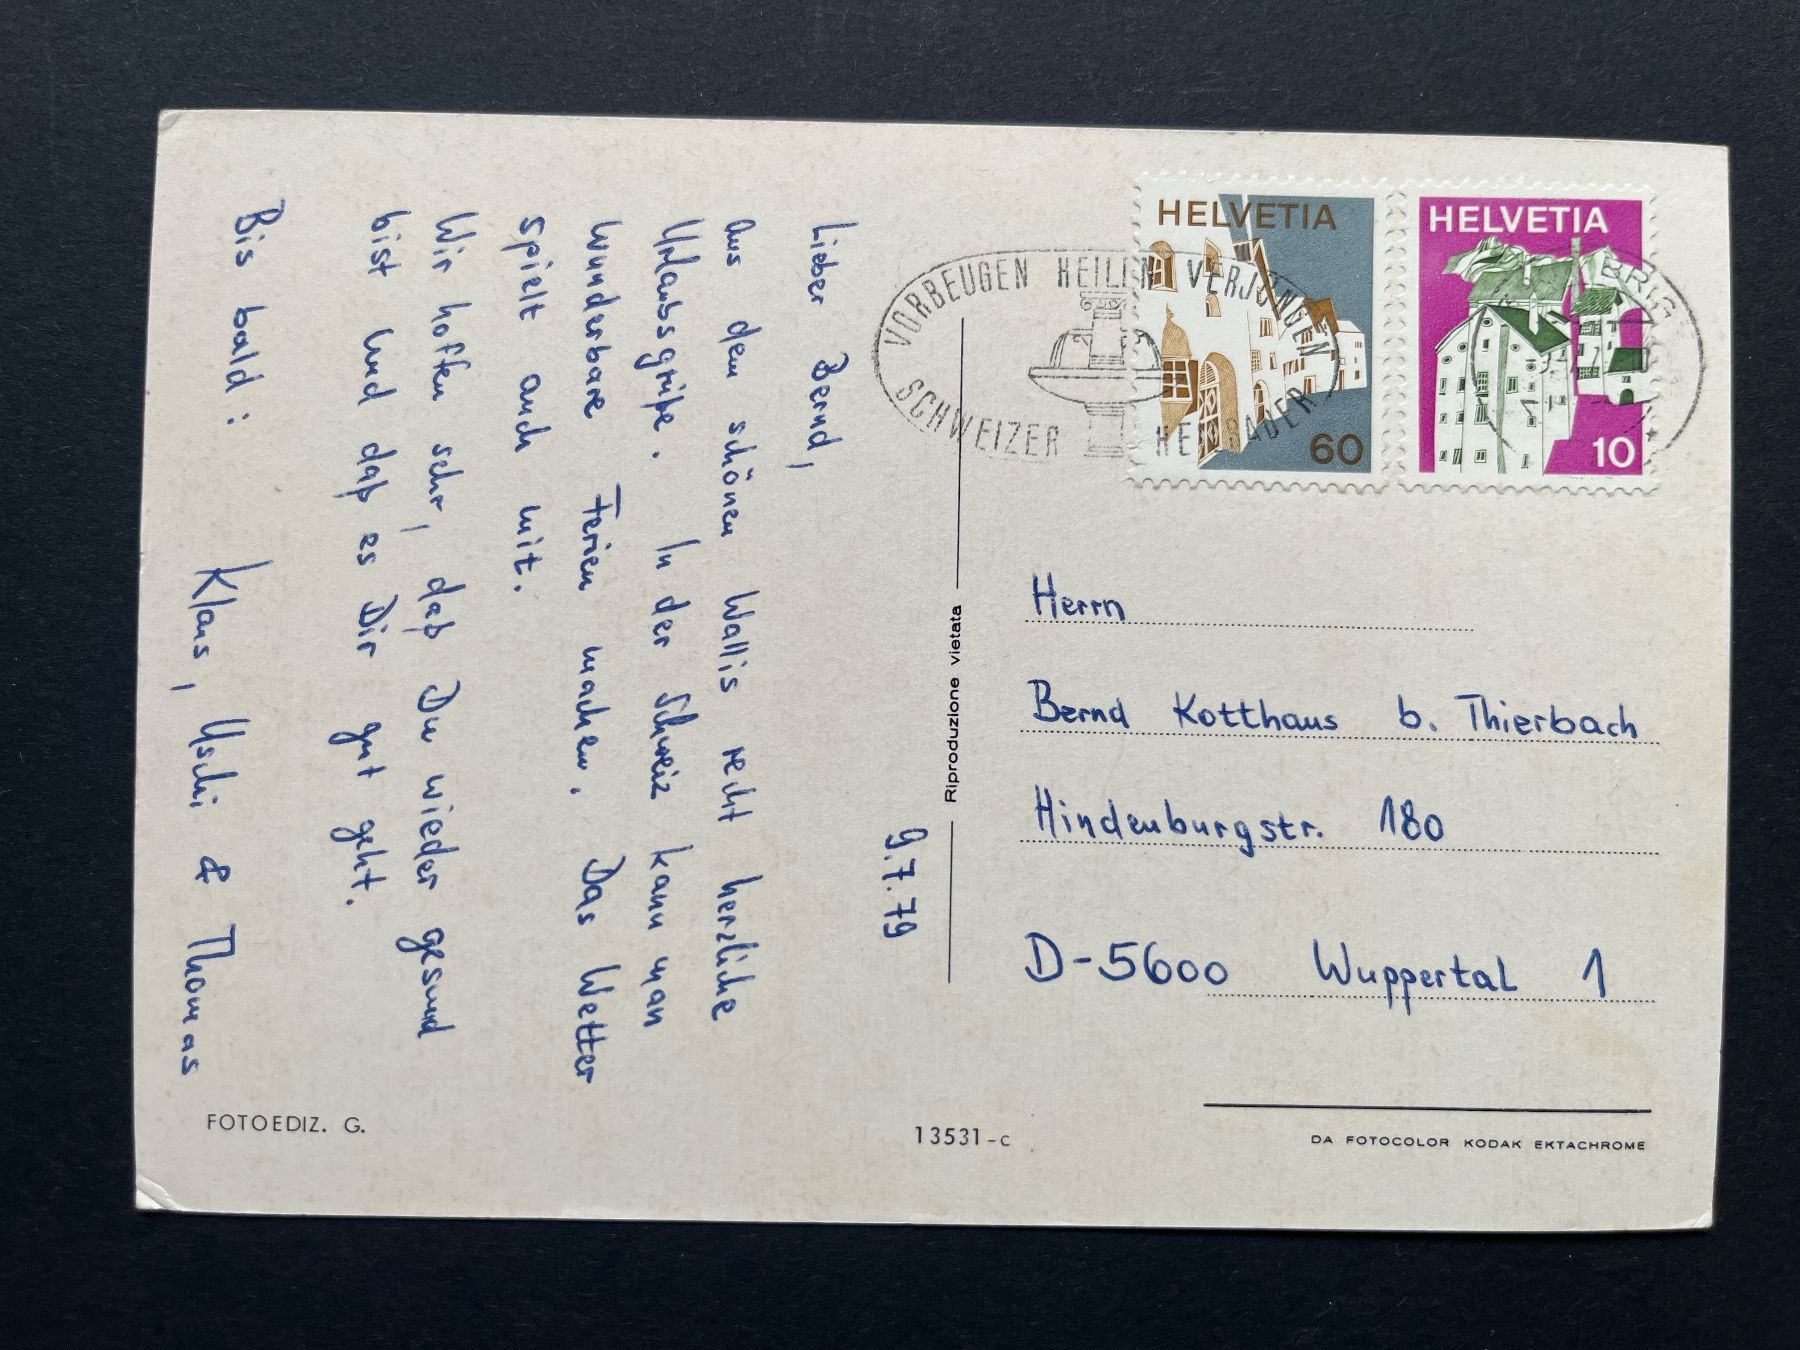 9.7.79
Lieber Bernd,
aus dem schönen Wallis recht herzliche
Urlaubsgrüße. In der Schweiz kann man
wunderbare Ferien machen. Das Wetter
spielt auch mit.
Wir hoffen sehr, daß Du wieder gesund
bist und daß es Dir gut geht.
Bis bald:
Klaus, Uschi & Thomas
FOTOEDIZ. G.
13531-c
Riproduzione vietata
VORBEUGEN HEILEN VERJÜNGEN
SCHWEIZER HEILBÄDER
HELVETIA
60
HELVETIA
10
BRIG
Herrn
Bernd Kotthaus b. Thierbach
Hindenburgstr. 180
D-5600 Wuppertal 1
DA FOTOCOLOR KODAK EKTACHROME